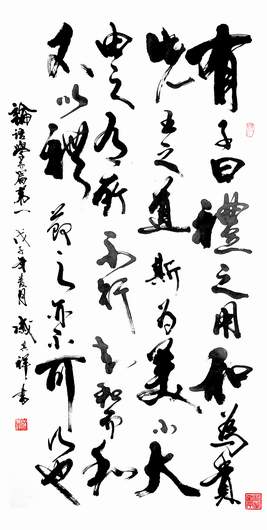 有子曰禮之用和為貴
先王之道斯為美小大
由之有所不行知和而和
不以禮節之亦不可行也
論語學而篇第一 戊子年 月 祥書